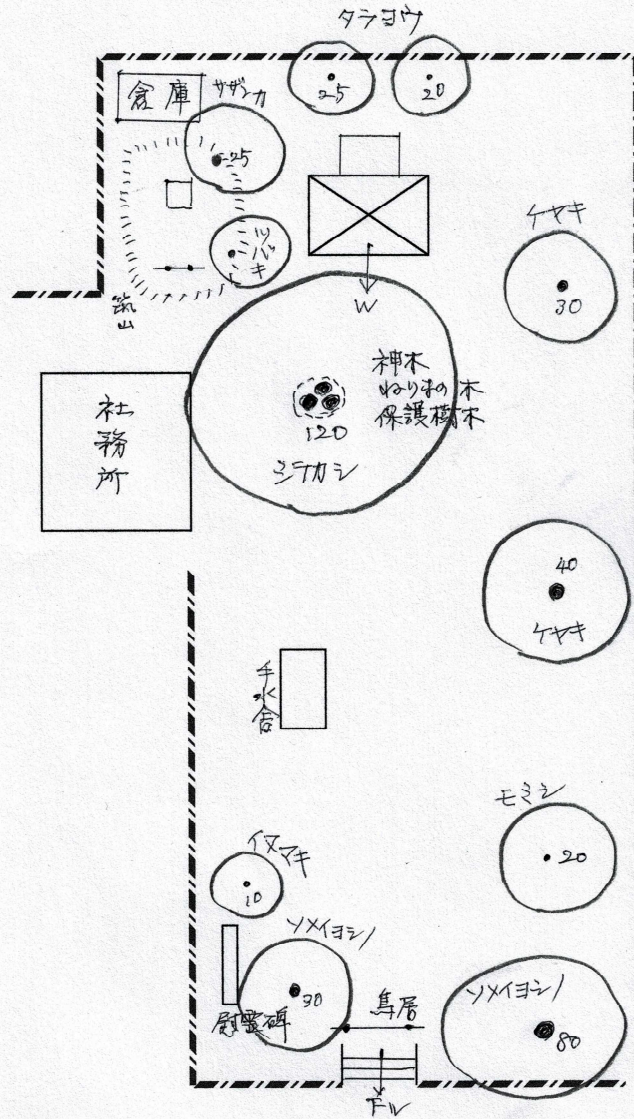 タラヨウ
25
20
倉庫
サザンカ
25
ツバキ
ケヤキ
30
W
築山
神木
ねりまの木
保護樹木
120
シラカシ
社務所
40
ケヤキ
手水舎
モミジ
20
イヌマキ
10
ソメイヨシノ
30
慰霊碑
鳥居
ソメイヨシノ
80
下ル